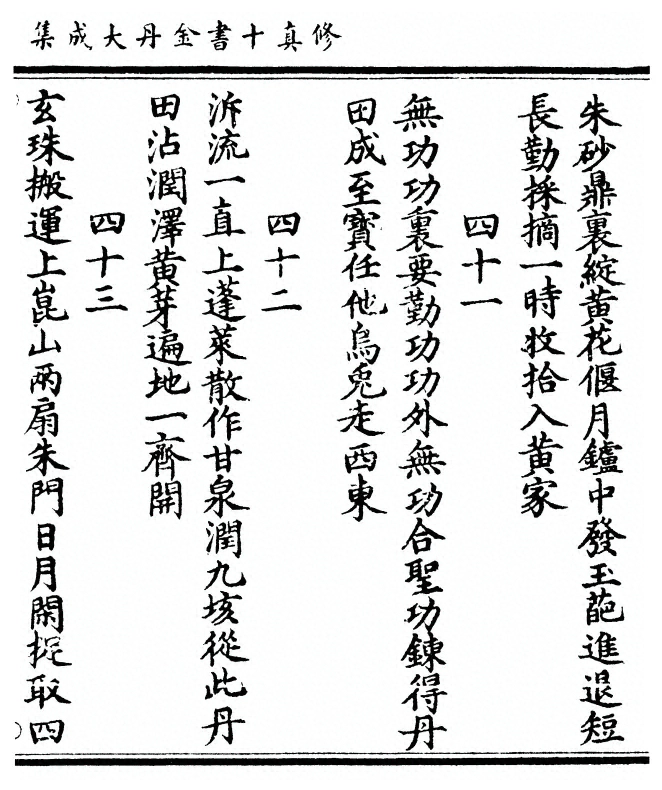 修真十書金丹大成集
朱砂鼎裏綻黃花偃月鑪中發玉葩進退短
長勤採摘一時收拾入黃家
四十一
無功功裏要勤功功外無功合聖功鍊得丹
田成至寶任他烏兔走西東
四十二
泝流一直上蓬萊散作甘泉潤九垓從此丹
田沾潤澤黃芽遍地一齊開
四十三
玄珠搬運上崑山兩扇朱門日月閑捉取四